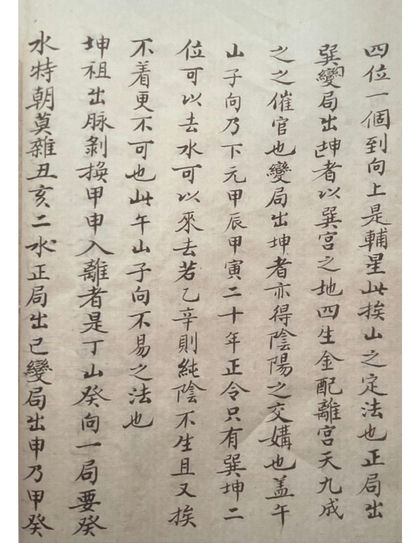 四位一個到向上是輔星此挨山之定法也正局出
巽變局出坤者以巽宮之地四生金配離宮天九成
之之催官也變局出坤者亦得陰陽之交媾也蓋午
山子向乃下元甲辰甲寅二十年正令只有巽坤二
位可以去水可以來去若乙辛則純陰不生且又挨
不着更不可也此午山子向不易之法也
坤祖出脉剝換甲申入離者是丁山癸向一局要癸
水特朝莫雜丑亥二水正局出巳變局出申乃甲癸